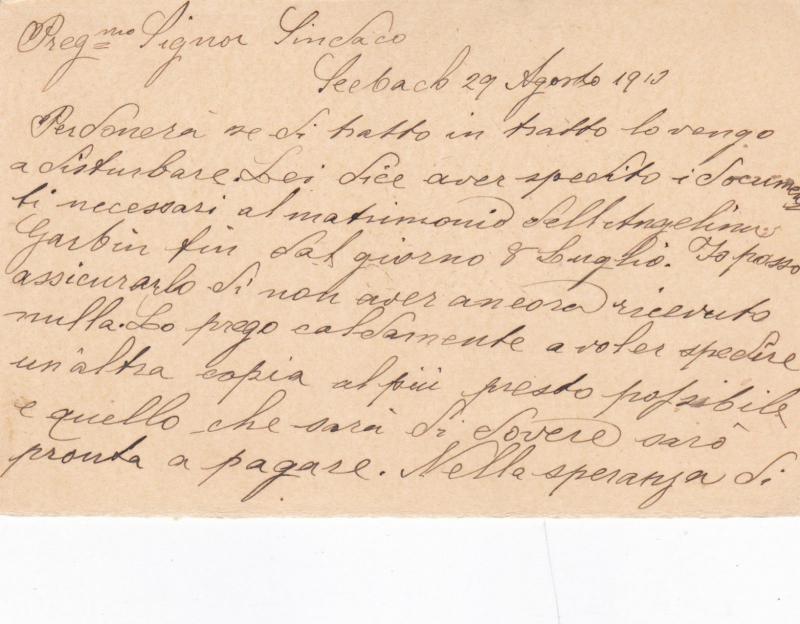 Preg.mo Signor Sindaco
Seebach 29 Agosto 1913
Perdonerà se di tratto in tratto lo vengo
a disturbare. Lei dice aver spedito i documen
ti necessari al matrimonio dell'Angelina
Garbin fin dal giorno 8 Luglio. Io posso
assicurarlo di non aver ancora ricevuto
nulla. Lo prego caldamente a voler spedire
un'altra copia al più presto possibile
e quello che sarà di dovere sarò
pronta a pagare. Nella speranza di